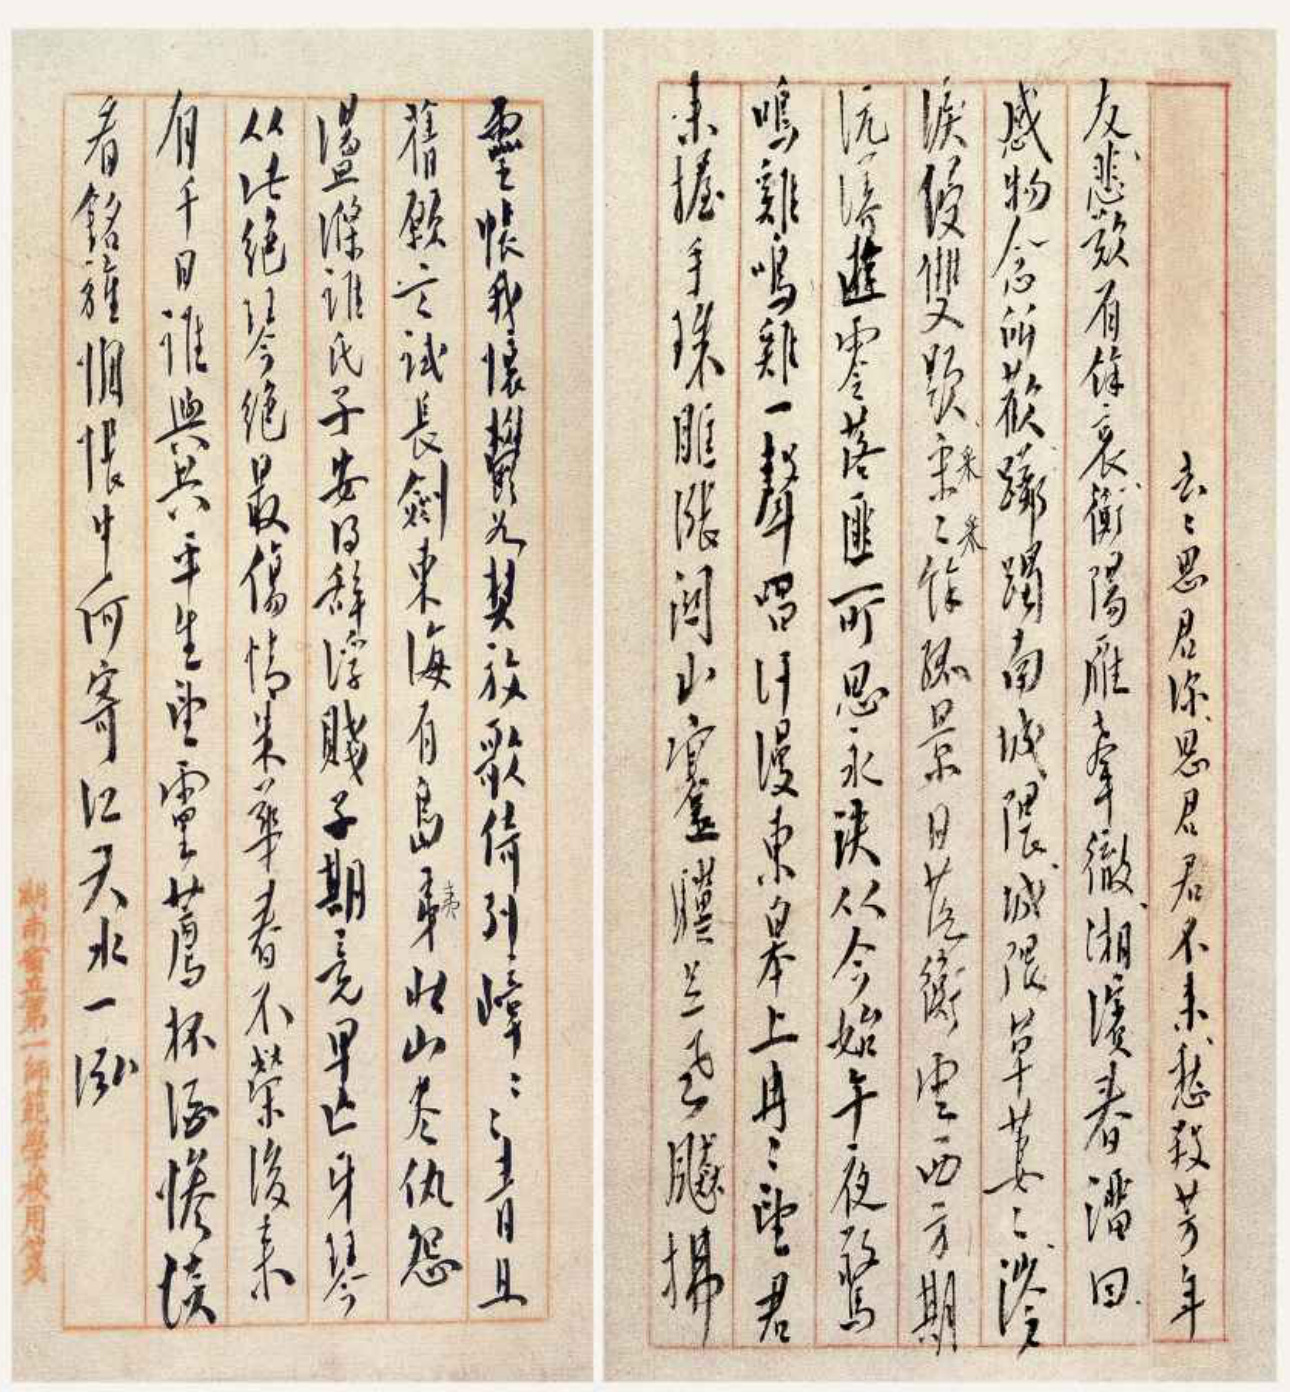 去〻思君深思君君不來愁殺芳年
友悲歎有餘哀衡陽雁聲徹湘濱春溜回
感物念所歡躑躅南城隈城隈草萋〻涔
淚侵雙題采〻餘孤景日落衡雲西方期
采 采
沆瀁遊零落匪所思永訣從今始午夜驚
鳴雞鳴雞一聲唱汗漫東皋上冉〻望君
來握手珠眶漲關山蹇驥足飛飈拂
靈帳我懷鬱如焚放歌倚列嶂〻〻青且
蒨願言試長劍東海有島夷北山盡仇怨
夷
盪滌誰氏子安得辭浮賤子期竟早亡牙琴
從此絕琴絕最傷情朱華春不榮後來
有千日誰與共平生望靈薦杯酒慘淡
看銘旌惆悵中何寄江天水一泓
湖南省立第一師範學校用箋